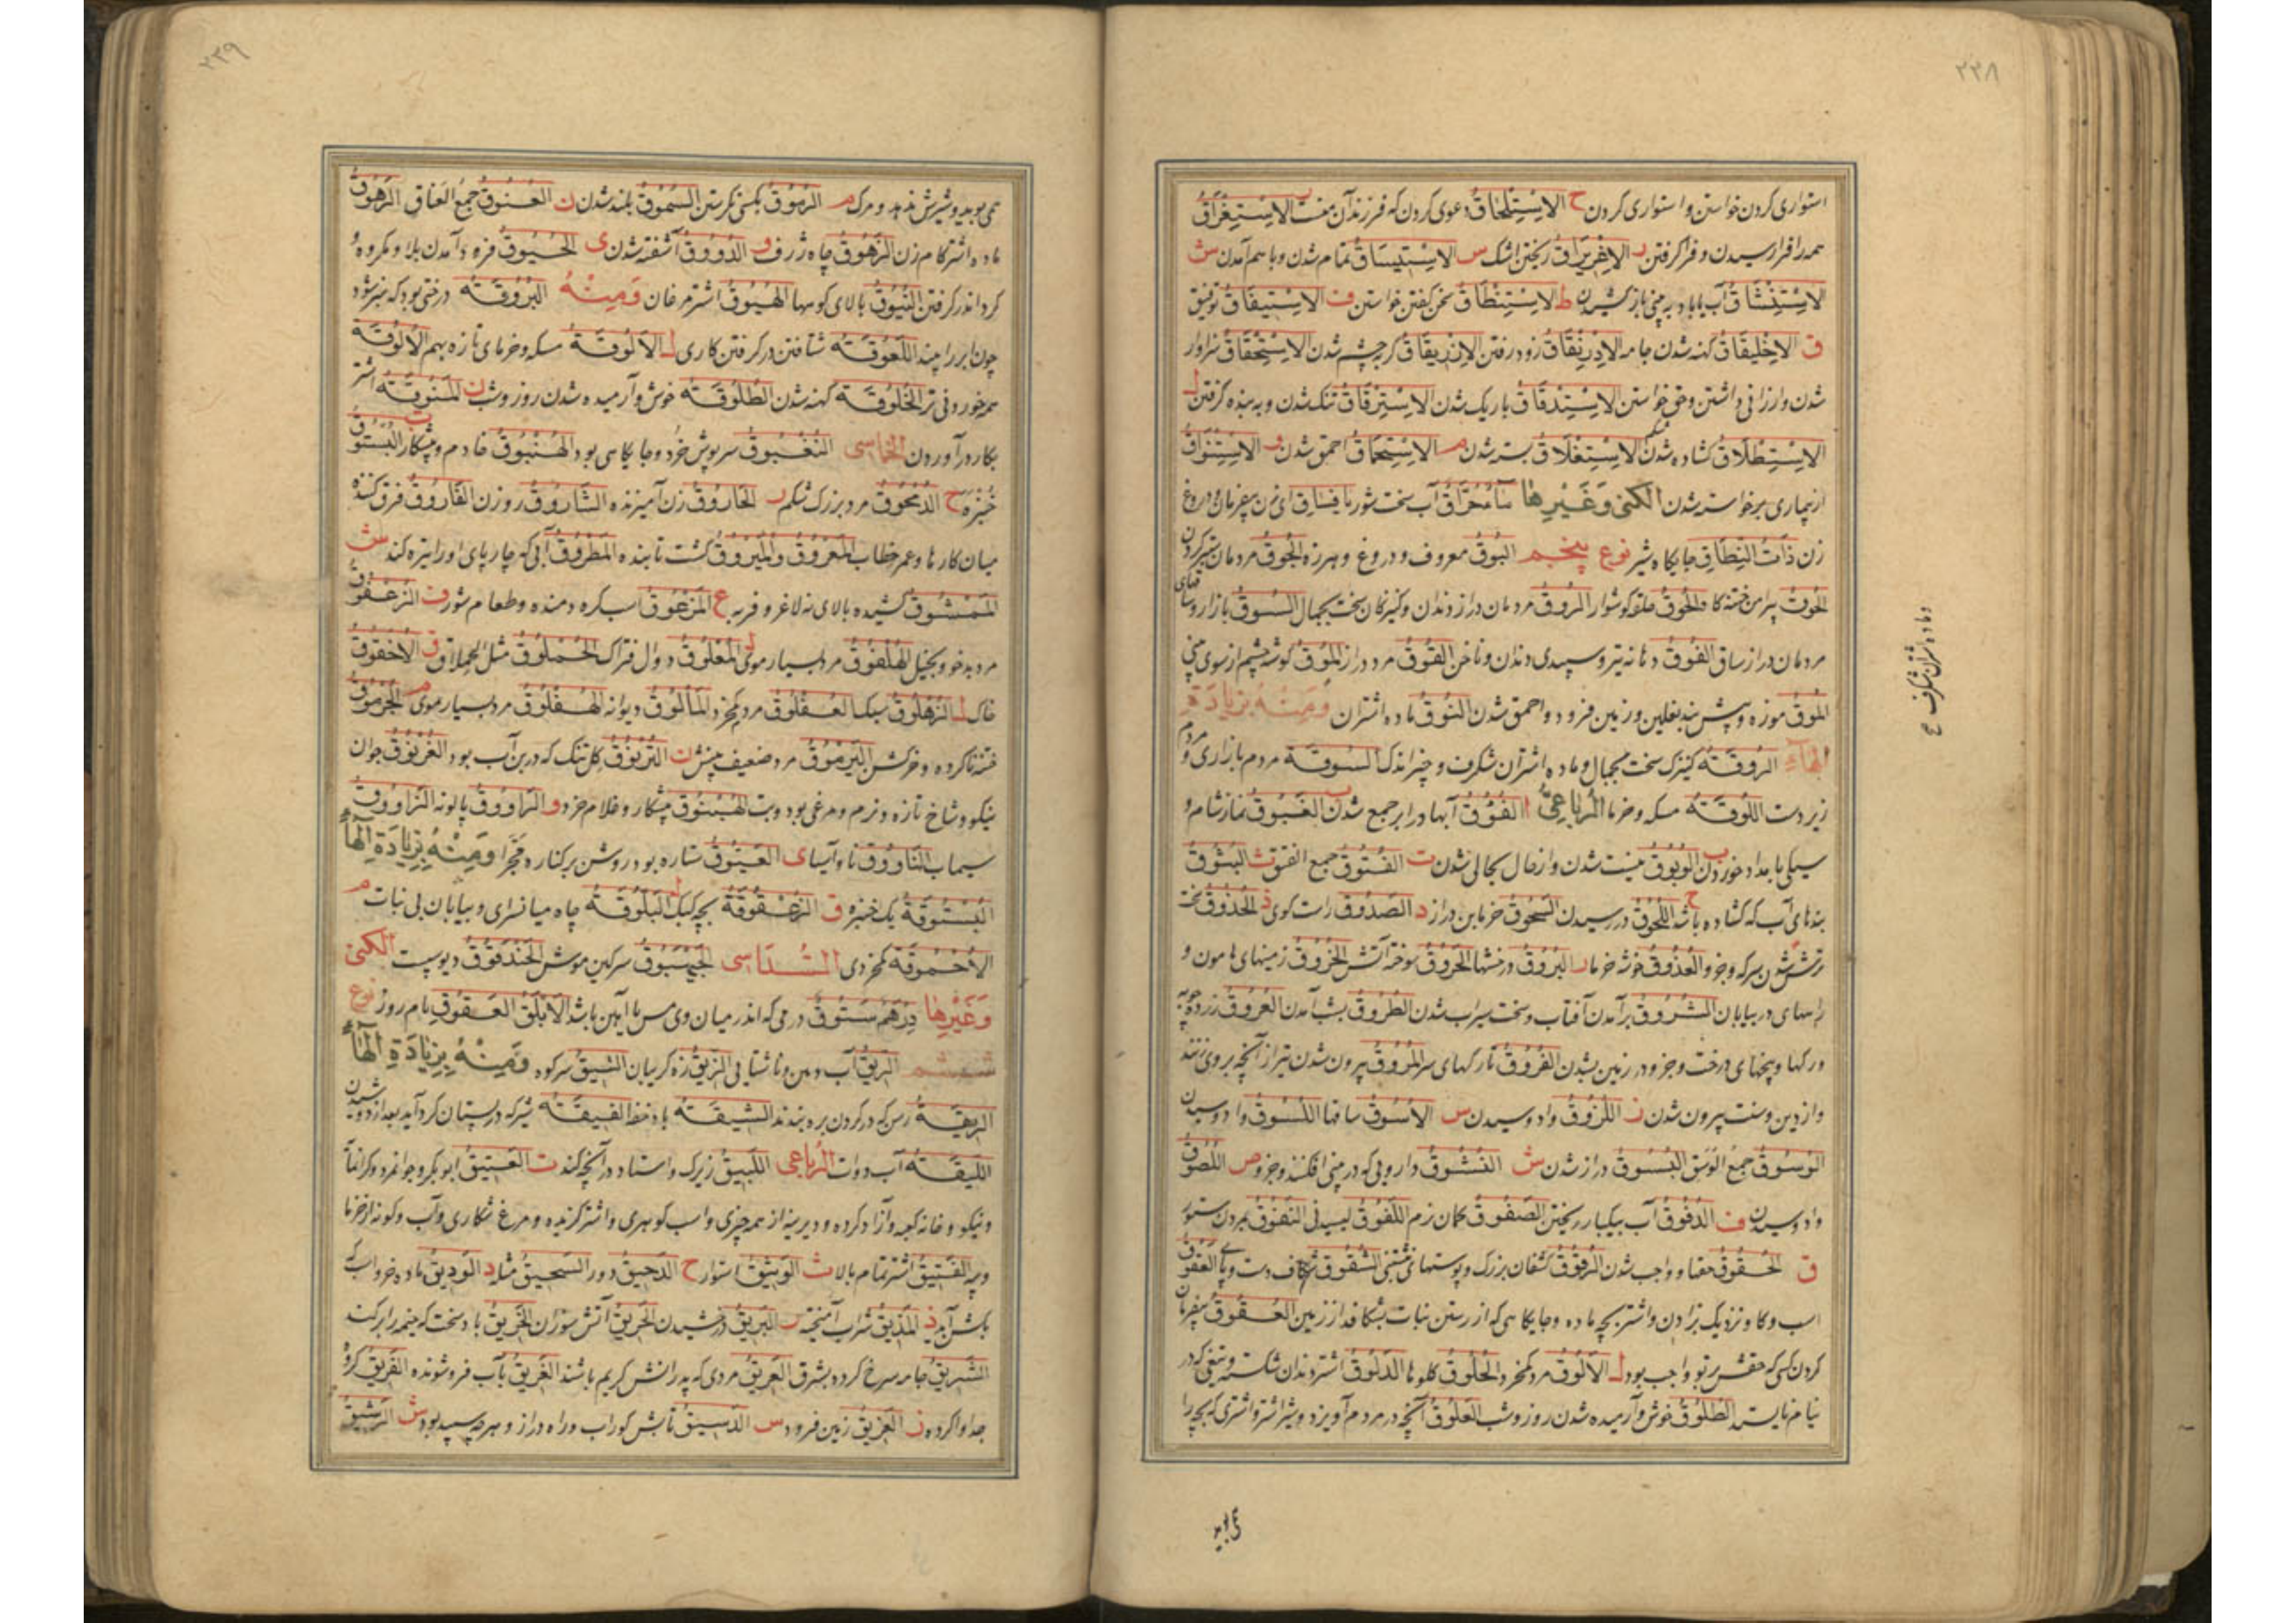 ۲۳۸
استواری کردن خواستن و استواری کردن ح الاِسْتِلْحَاقُ دعوی کردن که فرزند آن منست ب الاِسْتِغْرَاقُ
همه را فرا رسیدن و فرا گرفتن ر الاِغْرِیرَاقُ ریختن اشک س الاِسْتِیسَاقُ تمام شدن و باسم آمدن ش
الاِسْتِنْشَاقُ آب یا باد به بینی باز کشیدن ط الاِسْتِنْطَاقُ سخن گفتن خواستن ف الاِسْتِیفَاقُ توفیق
ق الاِخْلِیقَاقُ کهنه شدن جامه الاِدْرِنْقَاقُ زود رفتن الاِزْرِیقَاقُ گربه چشم شدن الاِسْتِحْقَاقُ سزاوار
شدن و ارزانی داشتن و حق خواستن الاِسْتِدْقَاقُ باریک شدن الاِسْتِرْقَاقُ تنک شدن و به بنده گرفتن ل
الاِسْتِطْلَاقُ گشاده شدن شکم الاِسْتِغْلَاقُ بسته شدن م الاِسْتِحْمَاقُ احمق شدن و الاِسْتِفْوَاقُ
از بیماری برخواسته شدن الکنی وَغَیْرِهَا مَاءٌ حُرَاقٌ آب سخت شور یا فَسَاقِ ای زن بیفرمان و دروغ
زن ذَاتُ النِّطَاقِ جایگاه شیر نوع پنجم البُوقُ معروف و دروغ و هرزه الجُوقُ مردمان
الحُوقُ پیرامن ختنه گاه الخُوقُ حلقه گوشوار الرُوقُ مردمان دراز دندان و کنیزکان سخت بجمال السُوقُ بازار و ساقهای
مردمان دراز ساق الفُوقُ دهانه تیر و سپیدی دندان و ناخن القُوقُ مرد دراز المُوقُ گوشه چشم از سوی بینی
المُوقُ موزه و پیش بند نعلین و زمین فرود و احمق شدن النُوقُ ماده اشتران وَمِنْهُ بِزِیَادَةِ
الهَاءِ الرُوقَةُ کنیزک سخت بجمال و ماده اشتران شگرف و چیز اندک السُوقَةُ مردم بازاری و مردم
زیردست اللُوقَةُ مسکه و خرما الرُبَاعِیُّ ا الفُؤُقُ آبها در ابر جمع شدن ب الغَبُوقُ نماز شام و
سیکی بامداد خوردن الوُبُوقُ نیست شدن و از حال بحالی شدن ت الفُتُوقُ جمع الفتق ث البُثُوقُ
بندهای آب که گشاده باشد ح اللُحُوقُ در رسیدن السَحُوقُ خرمابن دراز د الصَدُوقُ راست گوی ذ الحُذُوقُ سخت
ترش شدن سرکه و جزو العُذُوقُ خوشه خرما ر البُرُوقُ درخشها الحَرُوقُ سوخته آتش الخُرُوقُ زمینهای هامون و
راههای در بیابان الشُرُوقُ برآمدن آفتاب و سخت سیراب شدن الطُرُوقُ بشب آمدن العُرُوقُ زردچوبه
و رگها و بیخهای درخت و جزو در زمین بشدن الفُرُوقُ تارکهای سر المُرُوقُ بیرون شدن تیر از آنچه بروی زنند
و از دین و سنت بیرون شدن ز اللُزُوقُ وادوسیدن س الأسُوقُ ساقها اللُسُوقُ وادوسیدن
الوُسُوقُ جمع الوَسق البُسُوقُ دراز شدن ش النَشُوقُ دارویی که در بینی افکنند و جزو ص اللُصُوقُ
وادوسیدن ف الدُفُوقُ آب بیکبار ریختن الصَفُوقُ کمان نرم اللَفُوقُ لیسیدنی النُفُوقُ بمردن ستور
ق الحُقُوقُ حقها و واجب شدن الزُقُوقُ کشفان بزرگ و پوستهای نبشتنی الشُقُوقُ شکاف دست و پای العَقُوقُ
اسب و گاو نزدیک بزادن و اشتر بچه ماده و جایگاهی که از رستن نبات بشکافد از زمین العُقُوقُ بیفرمان
کردن کسی که حقش بر تو واجب بود ل الأَلُوقُ مرد کم خرد الحُلُوقُ گلوها الدَلُوقُ اشتر دندان شکسته و تیغی که در
نیام نایستد الطُلُوقُ خوش و آرمیده شدن روز و شب العَلُوقُ آنچه در مردم آویزد و شیر اشتر و اشتری که بچه را
و ماده اشتران شگرف صح
۲۳۹
می بوید و شیرش ندهد و مرگ م الرُمُوقُ بکسی نگرستن السُمُوقُ بلند شدن ن العُنُوقُ جمع العَناق الرَهُوقُ
ماده اشتر کام زن الزَهُوقُ چاه ژرف و الدُوُوقُ آشفته شدن ی الحُیُوقُ فرود آمدن بلا و مکروه و
گرد اندر گرفتن النُیُوقُ بالای کوهها الهُیُوقُ اشتر مرغان وَمِنْهُ البَرْوَقَةُ درختی بود که سبز شود
چون ابر را بیند اللَعْوَقَةُ شتافتن در گرفتن کاری ل الأَلُوقَةُ مسکه و خرمای تازه بهم الأَلُوقَةُ
هر خوردنی تر الخُلُوقَةُ کهنه شدن الطُلُوقَةُ خوش و آرمیده شدن روز و شب ن المَنُوقَةُ اشتر
بکار درآوردن الخُمَاسِی النُغْبُوقُ سرپوش خرد و جایگاسی بود الهُنْبُوقُ خادم و پیشکار ت البُسْتُوقُ
خُنْبْرَه ح الدُمْحُوقُ مرد بزرگ شکم ر الخَارُوقُ زن آمیزنده الشَارُوقُ روزن الفَارُوقُ فرق کننده
میان کارها و عمر خطاب المَعْرُوقُ والمَبْرُوقُ گشت تابنده المَطْرُوقُ آبی که چارپای او را تیره کند ش
المَمْشُوقُ کشیده بالای نه لاغر و فربه ع المَزْعُوقُ اسب کره دمنده و طعام شور ف الزَعْفُوقُ
مرد بدخو و بخیل الهُلْفُوقُ مرد بسیار موی ل المُعْلُوقُ دوال فتراک الحُمْلُوقُ مثل الحملاق ق الأُخْقُوقُ
خاک ل الزُهْلُوقُ سبک العُفْلُوقُ مرد کم خرد المَأْلُوقُ دیوانه الهُفْلُوقُ مرد بسیار موی م الجُرْمُوقُ
ختنه ناکرده و خرکش البَرْمُوقُ مرد ضعیف بینش ن التُرْنُوقُ گل تنک که در بن آب بود الغُرْنُوقُ جوان
نیکو و شاخ تازه و نرم و مرغی بود و بت الهُبْنُوقُ پیشکار و غلام خرد و الرَاوُوقُ پالونه الزَاوُوقُ
سیماب النَاوُوقُ ناو آسیا ی العَیُّوقُ ستاره بود روشن بر کناره مَجَرّا وَمِنْهُ بِزِیَادَةِ الهَاءِ
البُسْتُوقَةُ یک خنبره ق الزُعْقُوقَةُ بچه کبک ل البَلُّوقَةُ چاه میان سرای و بیابان بی نبات م
الأُحْمُوقَةُ کم خردی السُّدَاسِی الجَیْهَبُوقُ سرگین موش الحَنْدَقُوقُ دیوسپست الکنی
وَغَیْرِهَا دِرْهَمٌ سَتُّوقٌ درمی که اندر میان وی مس یا آهن باشد الأَبْلَقُ العَقُوقُ بام روز نوع
ششم الرِیقُ آب دهن و ناشتایی الزِیقُ زه گریبان الشِیقُ سر کوه وَمِنْهُ بِزِیَادَةِ الهَاءِ
الرِبْقَةُ رسن که در گردن بره بندند الشِیقَةُ الفِیقَةُ شیر که در پستان گرد آید بعد از دوشیدن
اللِیقَةُ آب دوات الرُباعی اللَبِیقُ زیرک و استاد در آنچه کند ت العَتِیقُ ابوبکر و جوانمرد و گرانمایه
و نیکو و خانه کعبه و آزاد کرده و دیرینه از همه چیزی و اسب گوهری و اشتر گزیده و مرغ شکاری و آب و گونه از خرما
و پیه الفَتِیقُ اشتر تمام بالا ث الوَثِیقُ استوار ح الدَحِیقُ دور السَحِیقُ مثله د الوَدِیقُ ماده خر و اسب که
بگشن آید ذ المَذِیقُ شراب آمیخته ر البَرِیقُ درخشیدن الحَرِیقُ آتش سوزان الخَرِیقُ باد سخت که خیمه را برکند
الشَرِیقُ جامه سرخ کرده بشرق العَرِیقُ مردی که پدرانش کریم باشند الغَرِیقُ بآب فرو شونده الفَرِیقُ گروه
جدا وا کرده ز العَزِیقُ زمین فرود س الدَسِیقُ تابش گوراب و راه دراز و هرچه سپید بود ش الرَشِیقُ